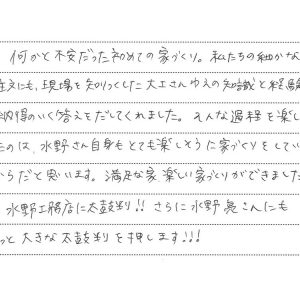 何かと不安だった初めての家づくり。私たちの細かな
注文にも、現場を知りつくした大工さんゆえの知識と経験
納得のいく答えをだしてくれました。そんな過程を楽し
たのは、水野さん自身もとても楽しそうに家づくりをしてい
からだと思います。満足な家 楽しい家づくりができました
水野工務店に太鼓判!! さらに水野亮さんにも
っと大きな太鼓判を押します!!!